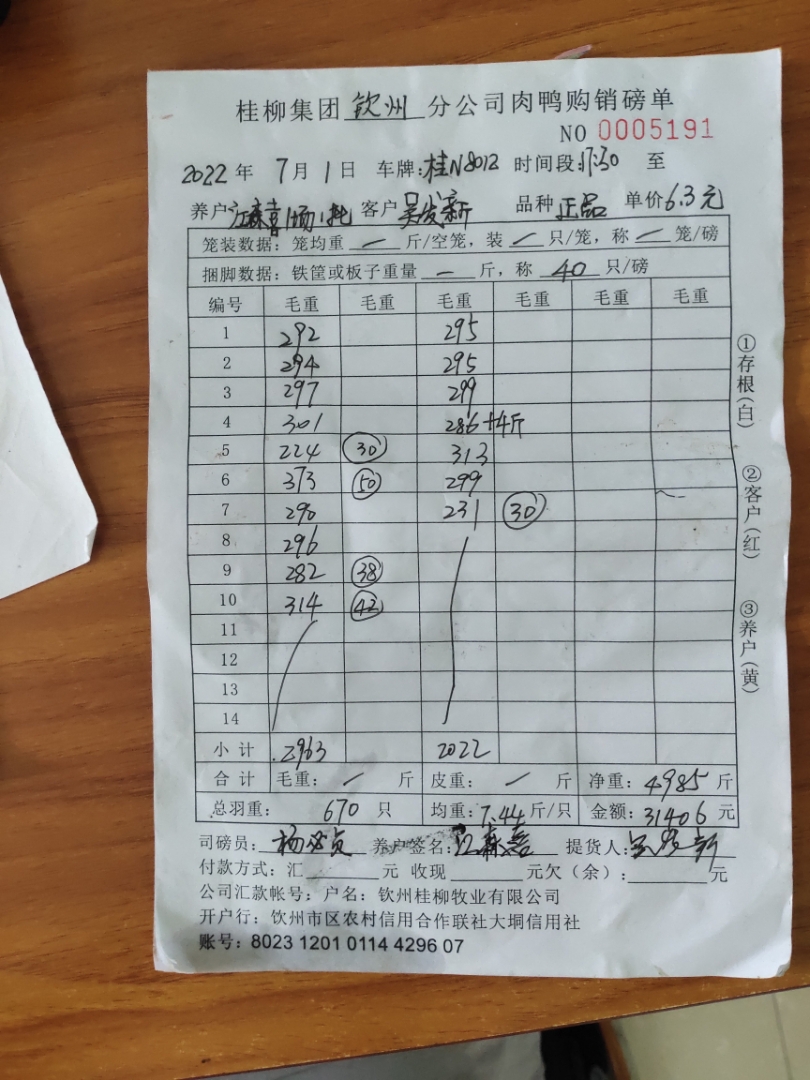 桂柳集团 钦州 分公司肉鸭购销磅单
NO 0005191
2022 年 7 月 1 日 车牌:桂N8012 时间段: 至
养户: 客户 吴发新 品种 正品 单价 6.3元
笼装数据：笼均重 一 斤/空笼，装 一 只/笼，称 一 笼/磅
捆脚数据：铁筐或板子重量 一 斤，称 40 只/磅
编号 毛重 毛重 毛重 毛重 毛重 毛重
1 292 295
2 294 295
3 297 299
4 301 286+4斤
5 224 30 313
6 373 50 299
7 290 231 30
8 296
9 282 38
10 314 42
11
12
13
14
小计 2963 2022
合计 毛重： / 斤 皮重： / 斤 净重：4985 斤
总羽重： 670 只 均重：7.44斤/只 金额：31406 元
司磅员： 养户签名：江森喜 提货人：吴发新
付款方式：汇 元 收现 元欠（余）： 元
公司汇款帐号：户名：钦州桂柳牧业有限公司
开户行：钦州市区农村信用合作联社大垌信用社
账号：8023 1201 0114 4296 07
①存根(白)
②客户(红)
③养户(黄)